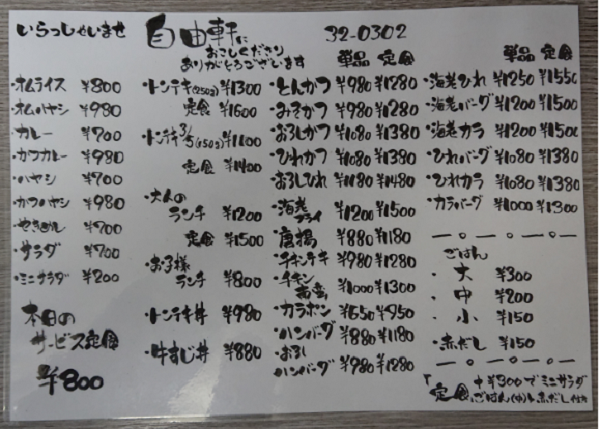 いらっしゃいませ
自由軒に
おこしくださり
ありがとうございます
32-0302
・オムライス ¥800
・オムハヤシ ¥980
・カレー ¥700
・カツカレー ¥980
・ハヤシ ¥700
・カツハヤシ ¥980
・やきめし ¥700
・サラダ ¥700
・ミニサラダ ¥200
本日の
サービス定食
¥800
・トンテキ(250g) ¥1300
定食 ¥1600
・トンテキ3/5(150g) ¥1100
定食 ¥1400
・大人の
ランチ ¥1200
定食 ¥1500
・お子様
ランチ ¥800
・トンテキ丼 ¥980
・牛すじ丼 ¥880
単品 定食
・とんかつ ¥980 ¥1280
・みそかつ ¥980 ¥1280
・おろしかつ ¥1080 ¥1380
・ひれかつ ¥1080 ¥1380
・おろしひれ ¥1180 ¥1480
・海老
フライ ¥1200 ¥1500
・唐揚 ¥880 ¥1180
・チキンテキ ¥980 ¥1280
・チキン
南蛮 ¥1000 ¥1300
・カラポン ¥650 ¥950
・ハンバーグ ¥880 ¥1180
・おろし
ハンバーグ ¥980 ¥1280
単品 定食
・海老ひれ ¥1250 ¥1550
・海老バーグ ¥1200 ¥1500
・海老カラ ¥1200 ¥1500
・ひれバーグ ¥1080 ¥1380
・ひれカラ ¥1080 ¥1380
・カラバーグ ¥1000 ¥1300
ごはん
・大 ¥300
・中 ¥200
・小 ¥150
・赤だし ¥150
「定食 +¥300でミニサラダ
ごはん(中)&赤だし付